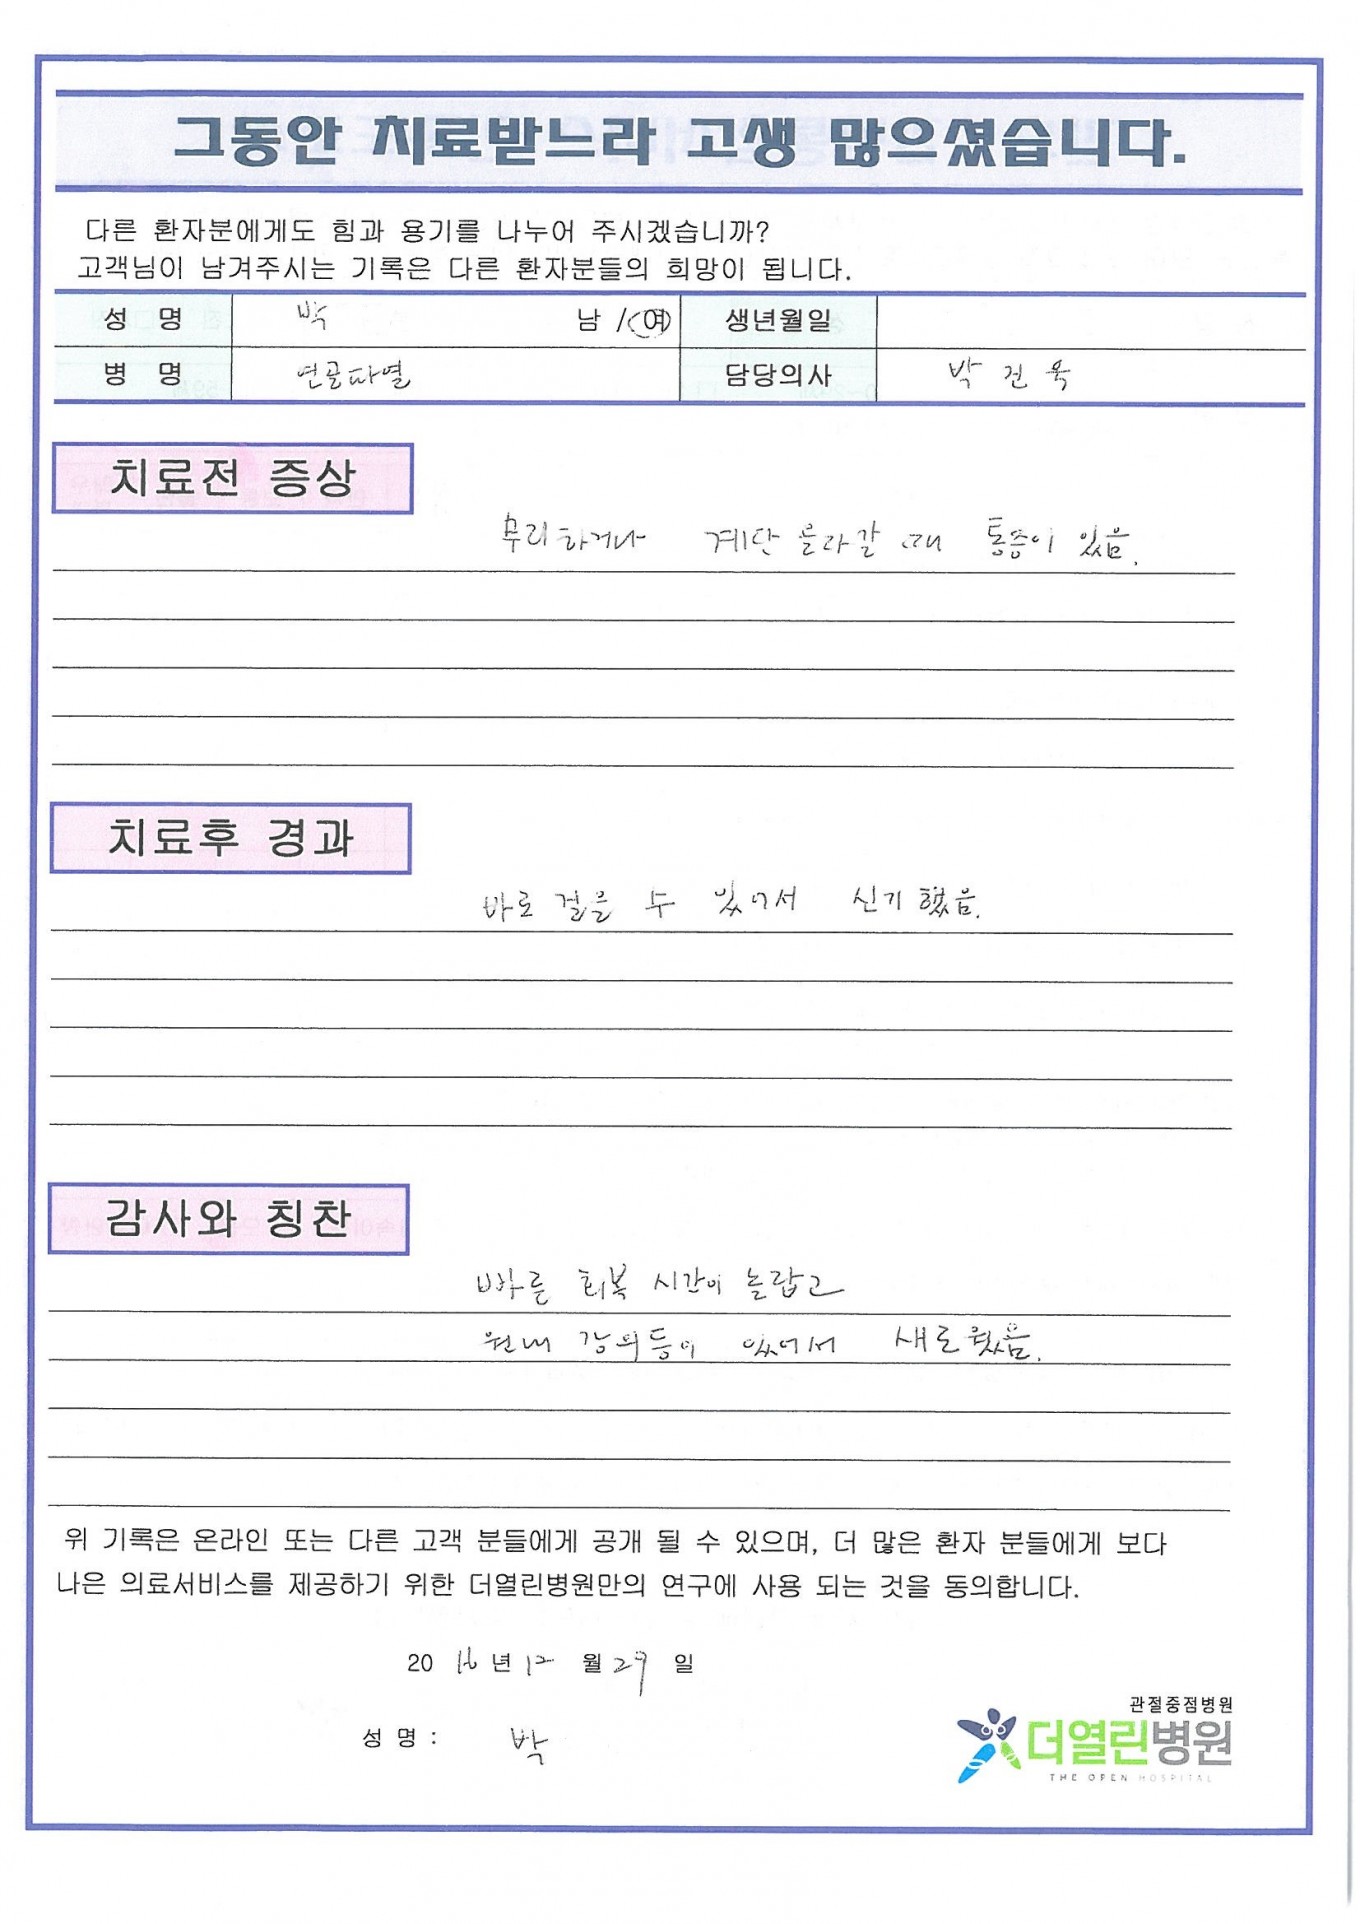 그동안 치료받느라 고생 많으셨습니다.
다른 환자분에게도 힘과 용기를 나누어 주시겠습니까?
고객님이 남겨주시는 기록은 다른 환자분들의 희망이 됩니다.
성 명 박 남 / (여) 생년월일
병 명 연골파열 담당의사 박건욱
치료전 증상
무리하거나 계단 올라갈 때 통증이 있음.
치료후 경과
바로 걸을 수 있어서 신기했음.
감사와 칭찬
빠른 회복 시간이 놀랍고
원내 강의등이 있어서 새로웠음.
위 기록은 온라인 또는 다른 고객 분들에게 공개 될 수 있으며, 더 많은 환자 분들에게 보다
나은 의료서비스를 제공하기 위한 더열린병원만의 연구에 사용 되는 것을 동의합니다.
20 16 년 12 월 29 일
성 명 : 박
관절중점병원
더열린병원
THE OPEN HOSPITAL